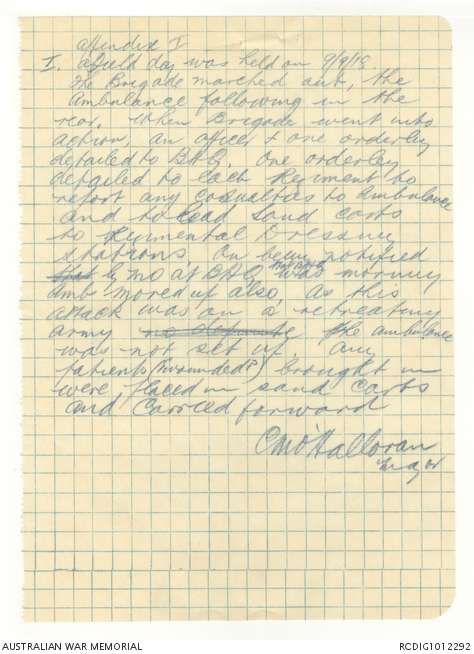 Appendix I
I. A field day was held on 9/9/18
The Brigade marched out, the
Ambulance following in the
rear. When Brigade went into
action, an officer & one orderly
detailed to BHQ. One orderley
detailed to each Regiment to
report any Casualties to Ambulance
and to lead Sand Carts
to Regimental Dressing
Stations. On being notified
by MO at BHQ, that BHQ was moving
Amb moved up also, As this
attack was on a retreating
army no definite the ambulance
was not set up, any
patients (wounded?) brought in
were placed in sand carts
and Carried forward
C M O'Halloran
Major
AUSTRALIAN WAR MEMORIAL
RCDIG1012292